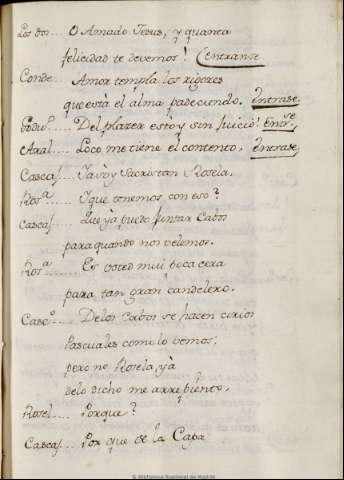 Los dos... O Amado Jesus, y quanta
felicidad te devemos! (entranse
Conde... Amor templa los rigores
que está el alma padeciendo. éntrase.
Del placer estoy sin juicio! Entr.e
Axal... Loco me tiene el contento. éntrase
Cascaj... Ya voy Sacristan Rosela.
Ros.a ... Y que tenemos con eso?
Cascaj... Que ya puedo juntar Cabos
para quando nos velemos.
Ros.a ... Es usted mui poca cera
para tan gran candelero.
Casc.o ... De los Cabos se hacen cirios
Pascuales como lo vemos;
pero no Rosela, yà
de lo dicho me arrepiento,
Rosel... Porque?
Cascaj... Por que de la Capa
© Biblioteca Nacional de Madrid